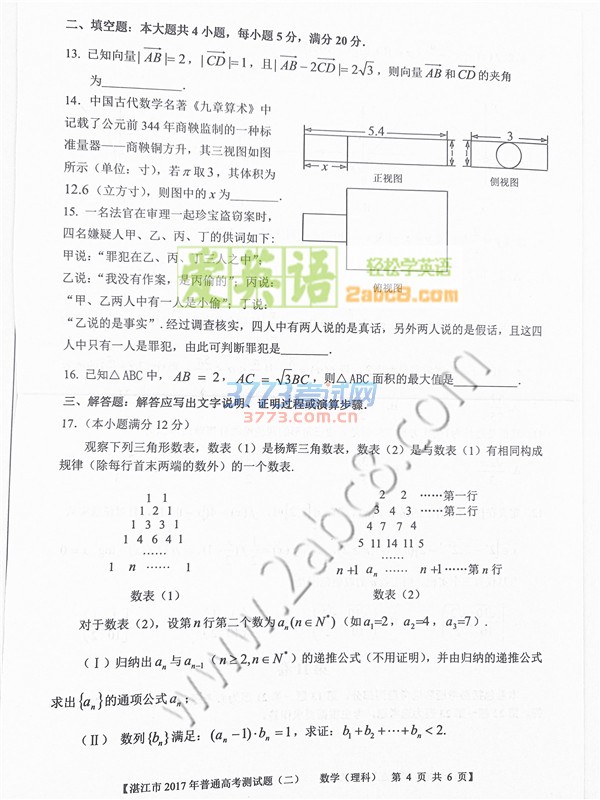 二、填空题：本大题共4小题，每小题5分，满分20分．
13. 已知向量|AB|=2，|CD|=1，且|AB-2CD|=2√3，则向量AB和CD的夹角
为____________．
14. 中国古代数学名著《九章算术》中
记载了公元前344年商鞅监制的一种标
准量器——商鞅铜方升，其三视图如图
所示（单位：寸），若π取3，其体积为
12.6（立方寸），则图中的x为________．
5.4
x
1
1
3
正视图
侧视图
俯视图
15. 一名法官在审理一起珍宝盗窃案时，
四名嫌疑人甲、乙、丙、丁的供词如下：
甲说：“罪犯在乙、丙、丁三人之中”；
乙说：“我没有作案，是丙偷的”；丙说：
“甲、乙两人中有一人是小偷”；丁说：
“乙说的是事实”．经过调查核实，四人中有两人说的是真话，另外两人说的是假话，且这四
人中只有一人是罪犯，由此可判断罪犯是________．
16. 已知△ABC中，AB = 2，AC = √3BC，则△ABC面积的最大值是__________．
三、解答题：解答应写出文字说明、证明过程或演算步骤．
17.（本小题满分12分）
观察下列三角形数表，数表（1）是杨辉三角数表，数表（2）是与数表（1）有相同构成
规律（除每行首末两端的数外）的一个数表．
1 1
1 2 1
1 3 3 1
1 4 6 4 1
……
1 n …… 1
数表（1）
2 2 ……第一行
3 4 3 ……第二行
4 7 7 4
5 11 14 11 5
……
n+1 aₙ …… n+1……第n行
数表（2）
对于数表（2），设第n行第二个数为aₙ(n∈N*)（如a₁=2，a₂=4，a₃=7）．
（Ⅰ）归纳出aₙ与aₙ₋₁（n≥2,n∈N*）的递推公式（不用证明），并由归纳的递推公式
求出{aₙ}的通项公式aₙ；
（Ⅱ） 数列{bₙ}满足：(aₙ-1)·bₙ=1，求证：b₁+b₂+⋯+bₙ<2.
【湛江市2017年普通高考测试题（二） 数学（理科） 第 4 页 共 6 页】
爱英语
轻松学英语
2abc8.com
3773考试网
3773.com.cn
www.2abc8.com